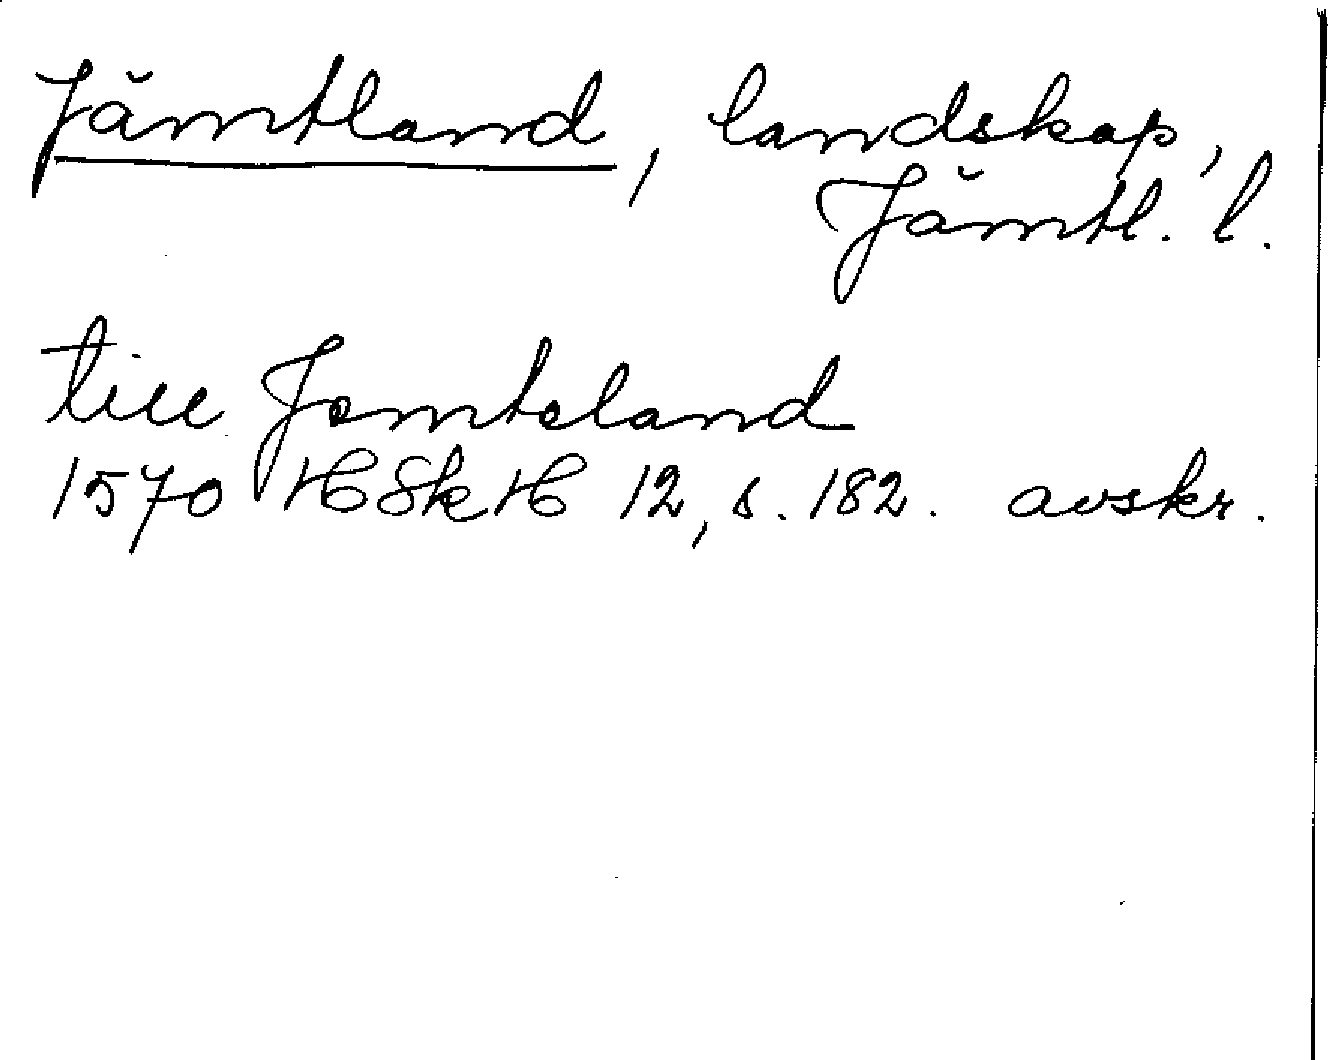 Jämtland, landskap,
Jämtl. l.
till Jomtoland
1570 HSkH 12, s. 182. avskr.